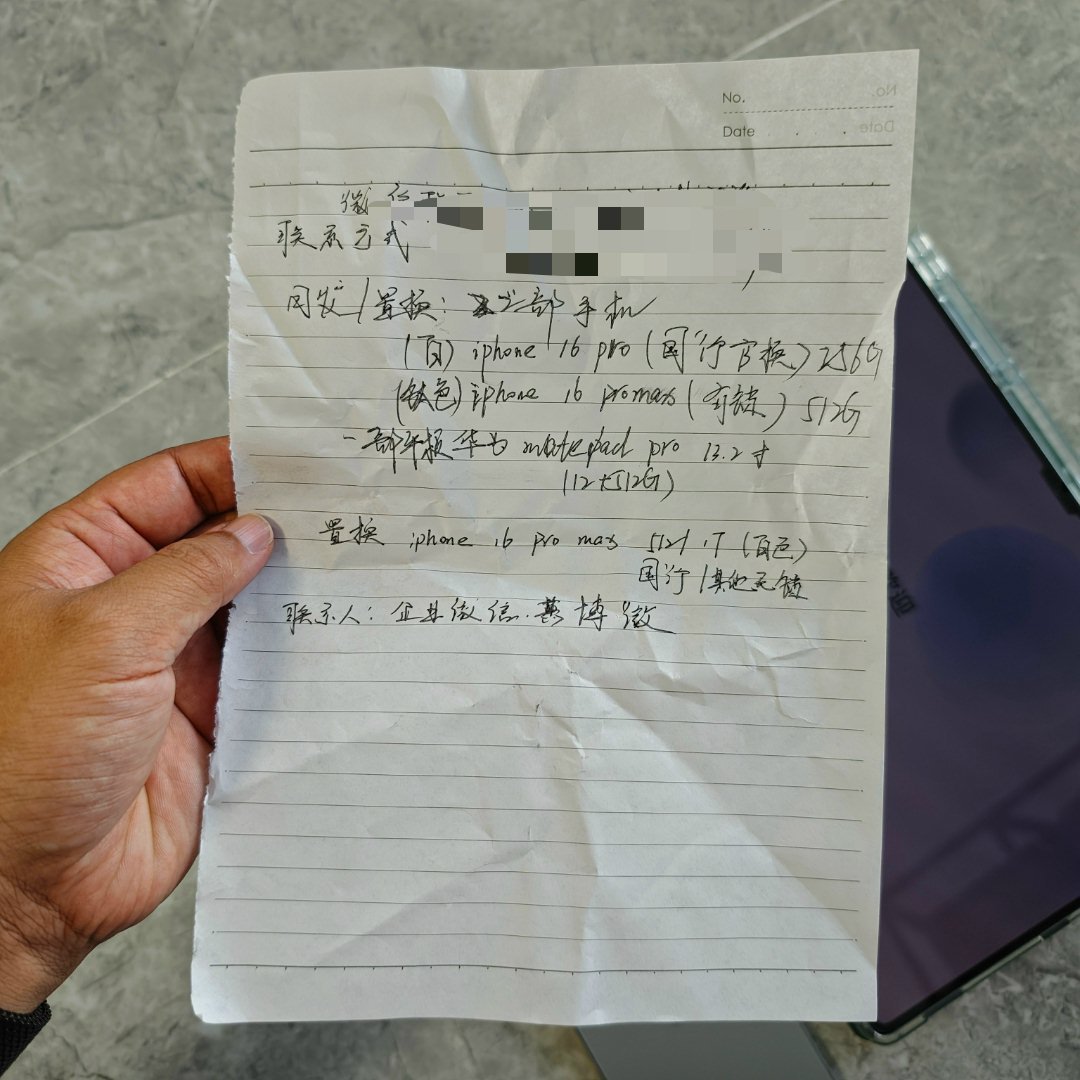 No.
Date
微信
联系方式
回收/置换: 部手机
(白) iphone 16 pro (国行官换) 256G
(钛色) iphone 16 promax (有锁) 512G
一部平板华为 matepad pro 13.2寸
(12+512G)
置换 iphone 16 pro max 512/1T (白色)
国行/其他无锁
联系人: 企业微信. 博微